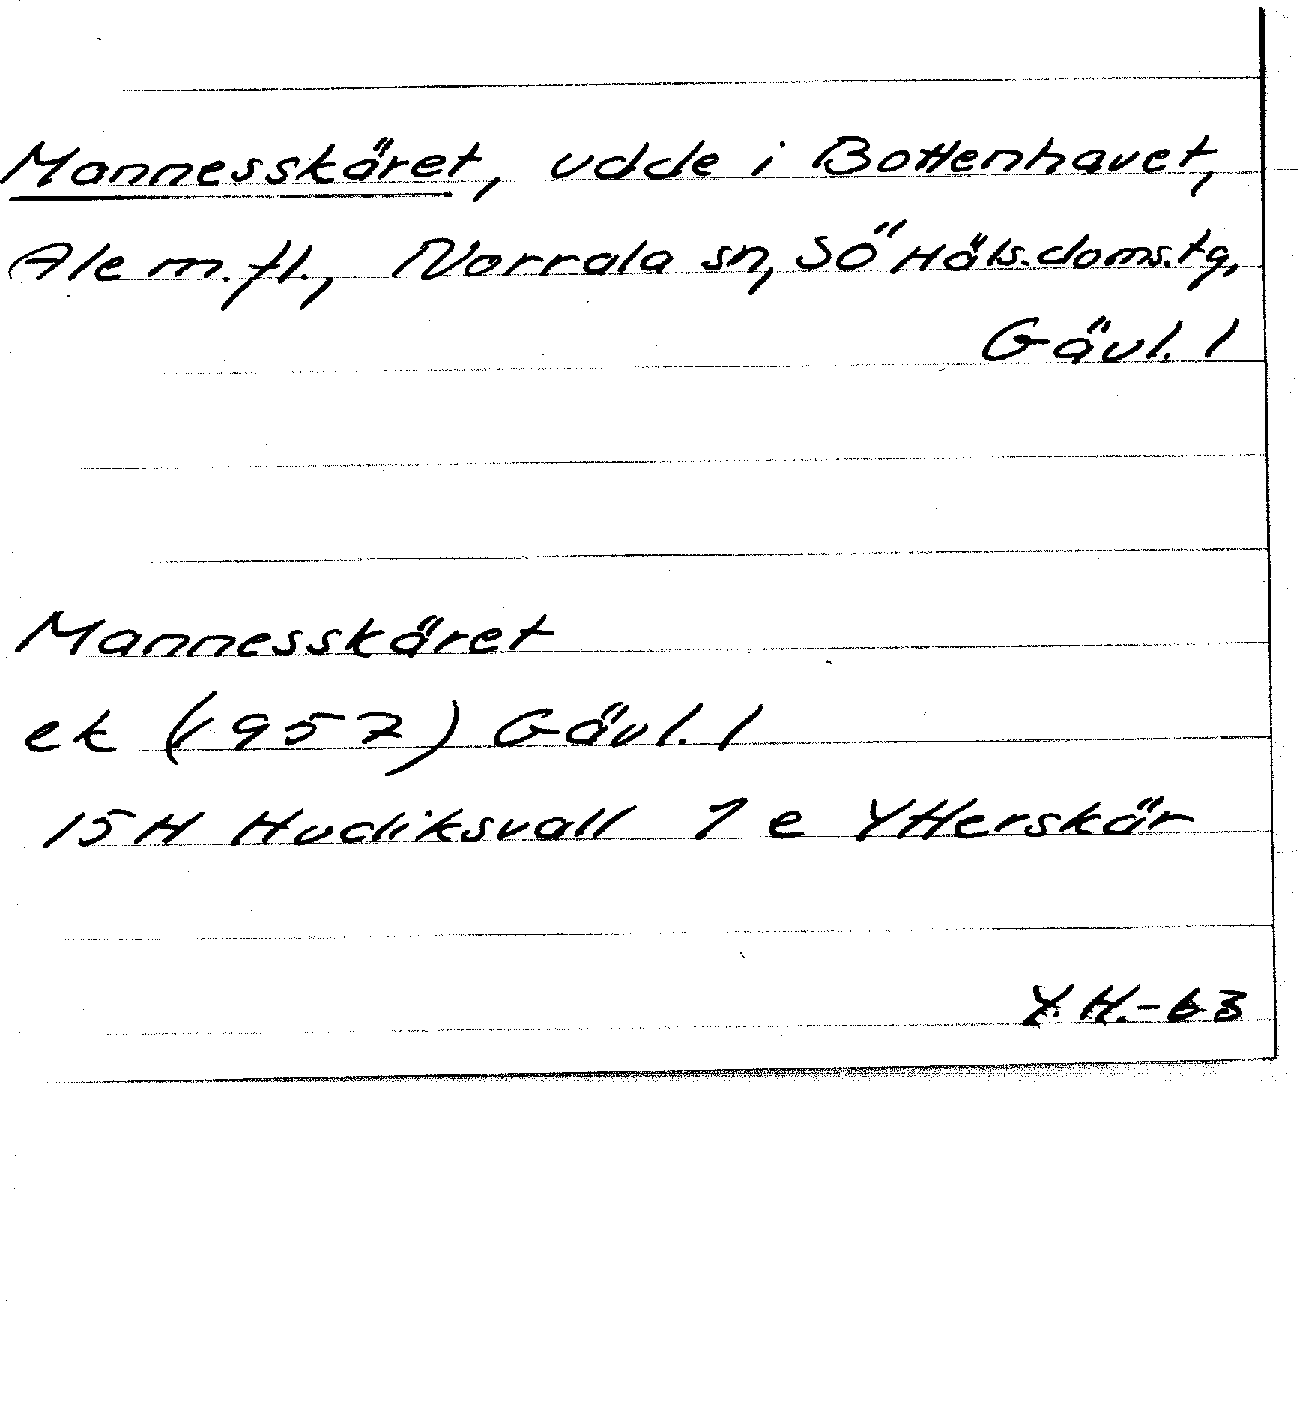 Mannesskäret, udde i Bottenhavet,
Ale m.fl., Norrala sn, SÖ Häls. doms. tg,
Gävl. l
Mannesskäret
ek (1957) Gävl. l
15H Hudiksvall 1 e Ytterskär
Y. H. -63